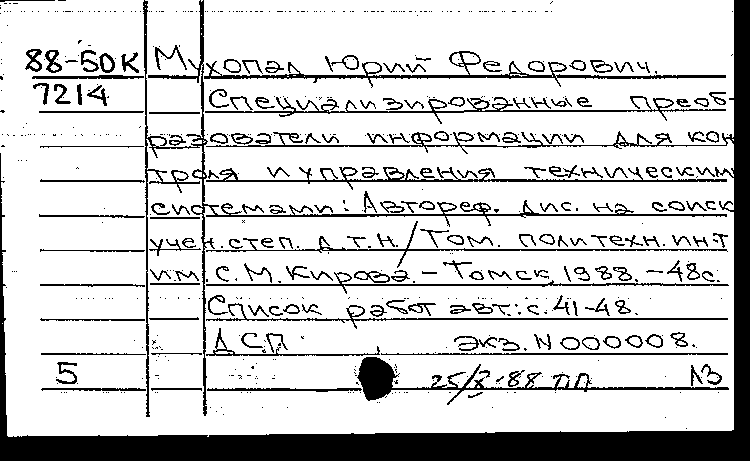 88-50К Мухопад, Юрий Федорович.
7214 Специализированные преоб-
разователи информации для кон
троля и управления техническим
системами: Автореф. дис. на соиск
учен. степ. д.т.н. / Том. политехн. ин-т
им. С.М. Кирова. - Томск, 1988. - 48с.
Список работ авт.: с. 41-48.
ДСП экз. N 000008.
5 25/X-88 ПП ЛЗ